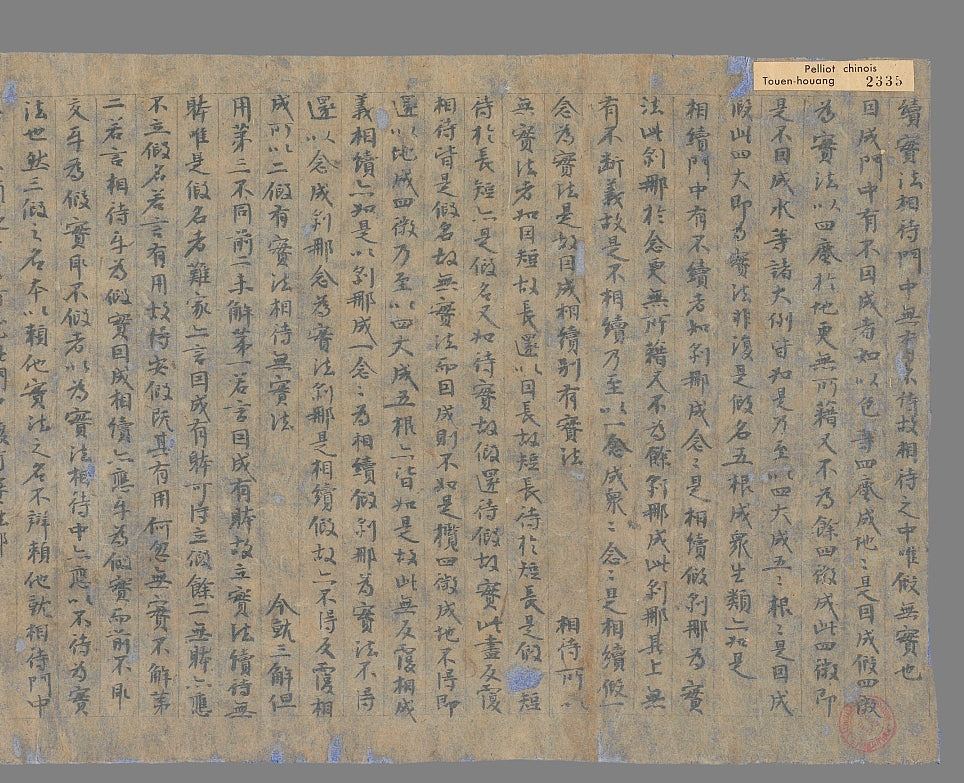 Pelliot chinois
Touen-houang 2335
續實法相待門中無有不待故相待之中唯假無實也
因成門中有不因成者如以色等四塵成地〻是因成假四微
為實法以四塵於地更無所藉又不為餘四微成此四微即
是不因成水等諸大例皆如是乃至以四大成五〻根〻是因成
假此四大即為實法非復是假名五根成眾生類亠如是
相續門中有不續者如剎那成念〻是相續假剎那為實
法此剎那於念更無所藉又不為餘剎那成此剎那其上無
有不斷義故是不相續乃至以一念成眾〻念〻是相續假一
念為實法是故因成相續別有實法 相待所以
無實法者如因短故長還以因長故短長待於短長是假短
待於長短亠是假名又如待實故假還待假故實此盡反覆
相待皆是假名故無實法而因成則不如是攬四微成地不得即
還以地成四微乃至以四大成五根亠皆如是故此無反覆相成
義相續亠如是以剎那成一念〻為相續假剎那為實法不得
還以念成剎那念為實法剎那是相續假故亠不得反覆相
成所以二假有實法相待無實法 今就三解但
用第三不同前二未解第一若言因成有體故立實法續待無
體唯是假名者難家亠言因成有體可得立假餘二無體亠應
不立假名若言有用故得安假既其有用何忽無實不解第
二若言相待乎為假實因成相續亠應乎為假實而前不即
交乎為假實即不假者以為實法相待中亠應以不待為實
法也然三假之名本以賴他實法之名不辯賴他就相待門中